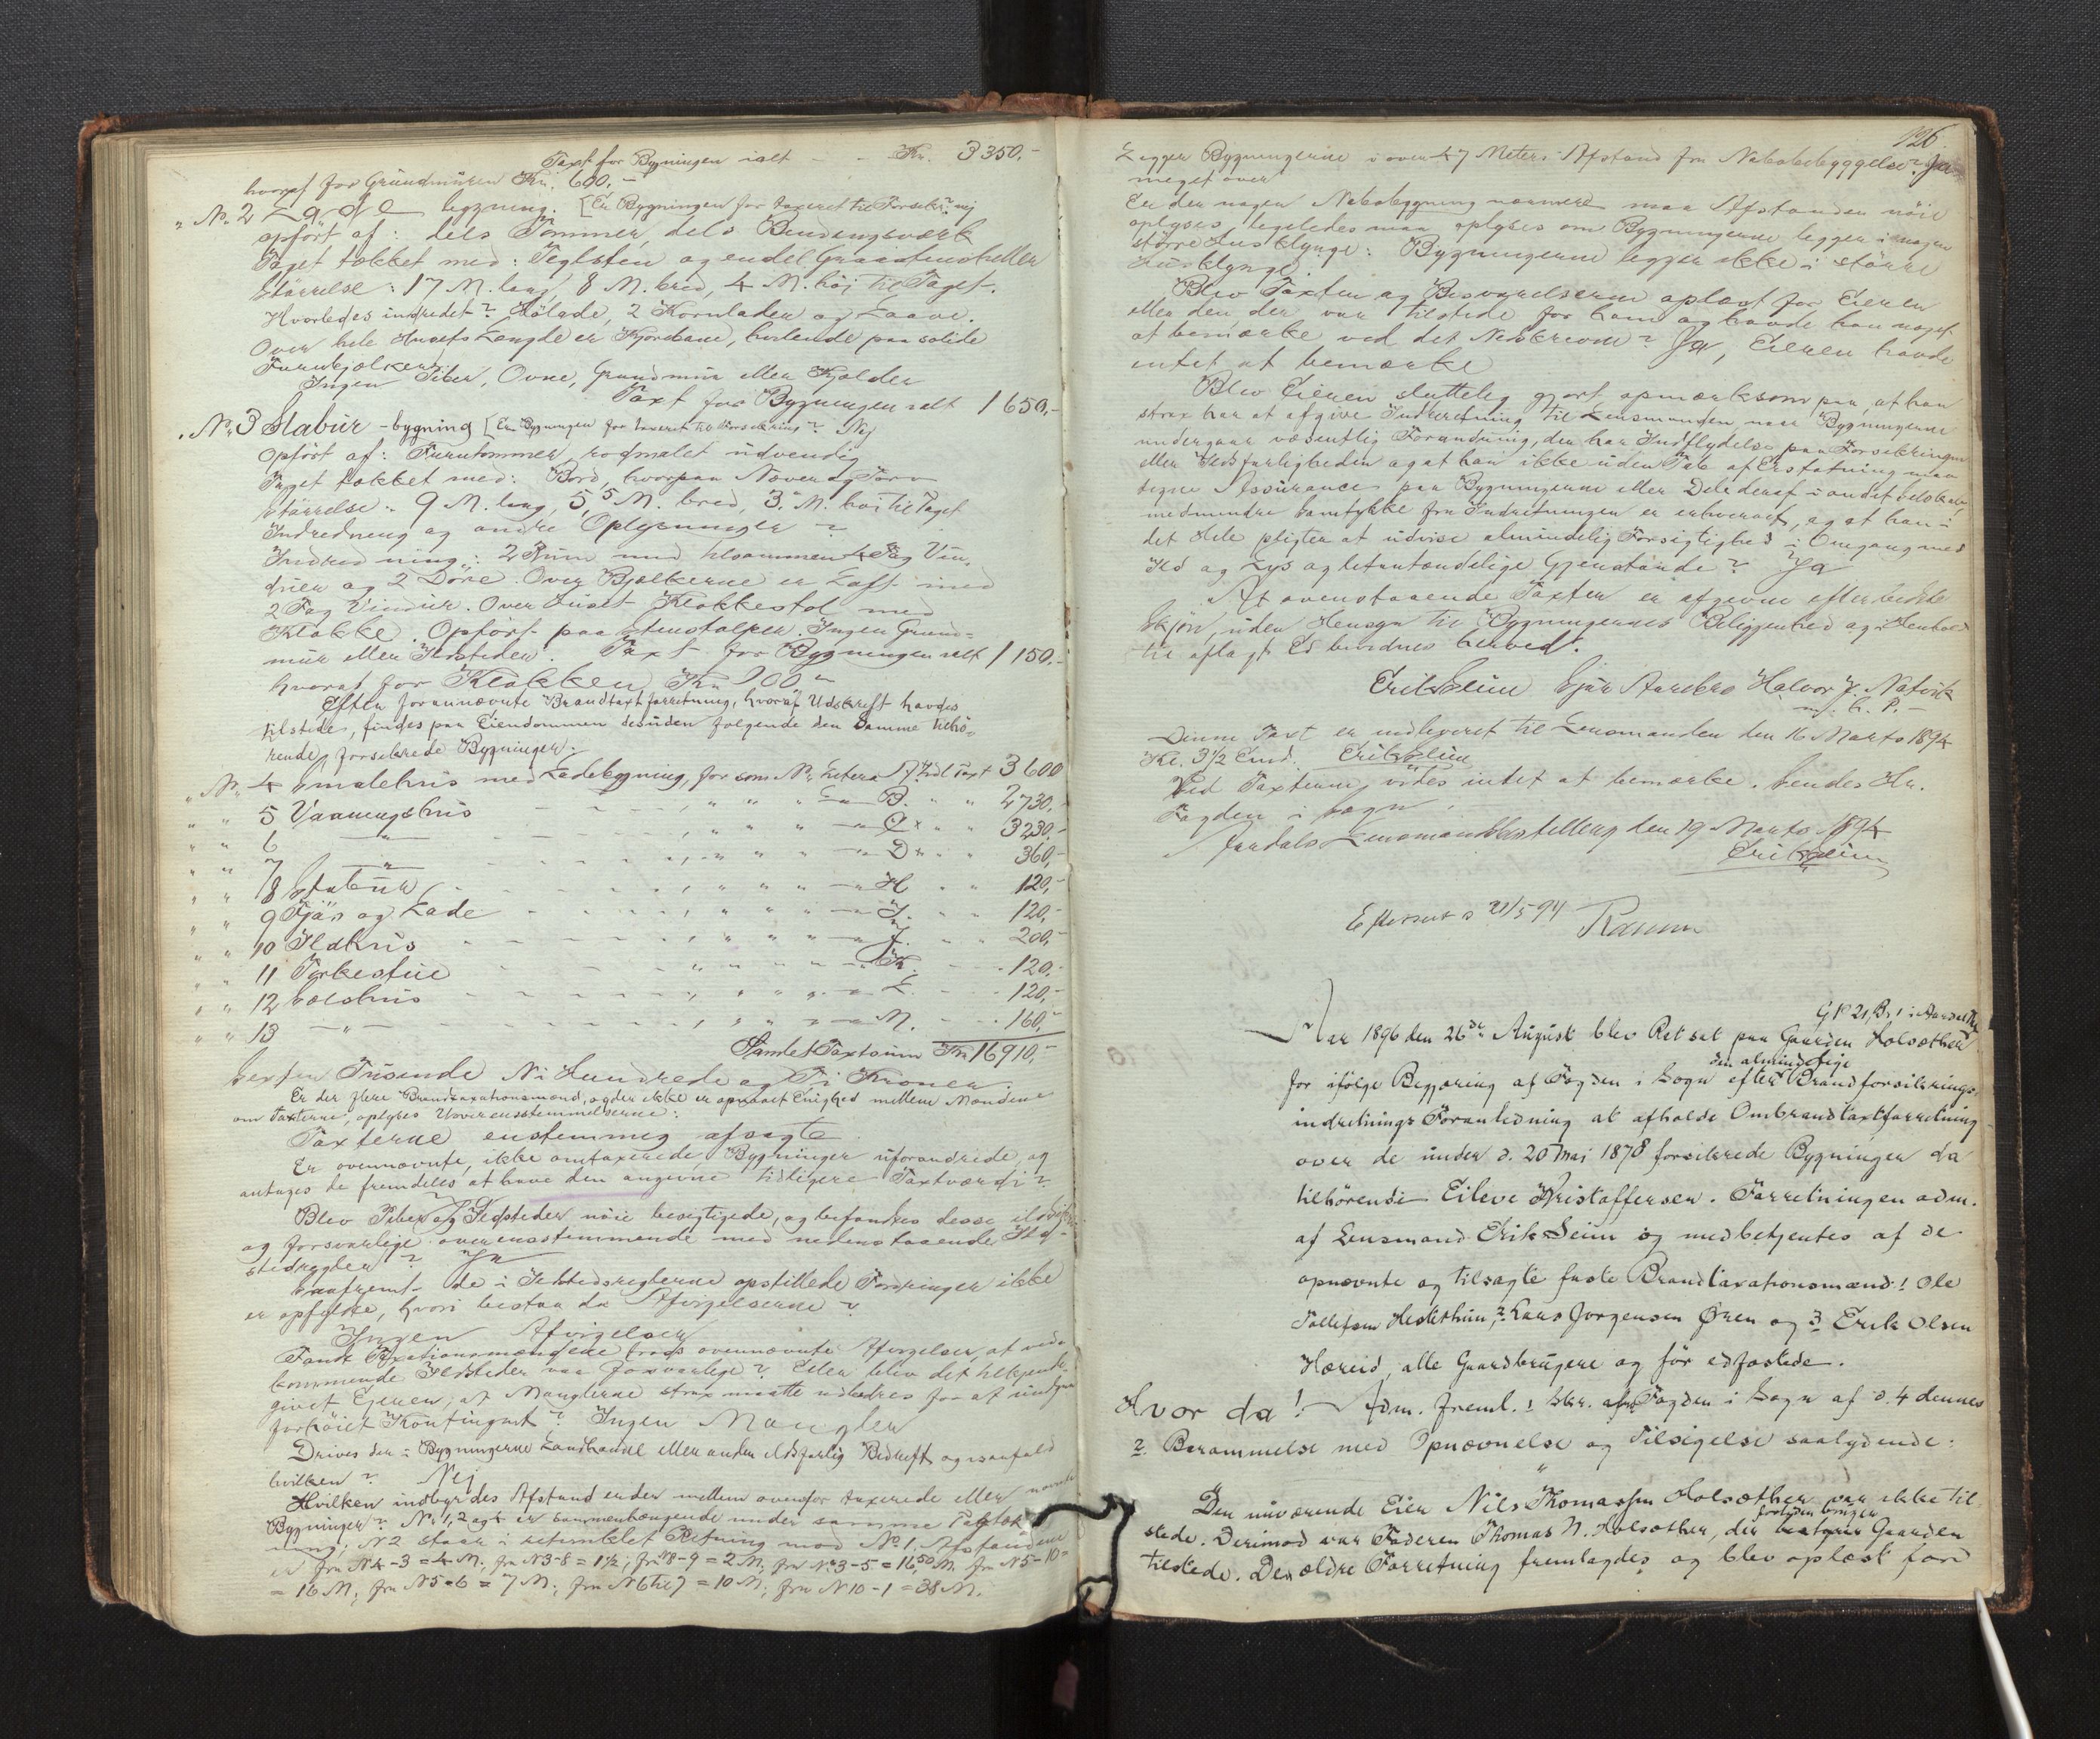 Taxt for Bygningen ialt - - Kr. 3350,-
hvoraf for Grundmüren Kr. 600,-
" No. 2 Lade bygning. [Er Bygningen før taxeret til Forsikr.? nej
opført af: dels Tømmer, dels Bindingsværk
Taget tækket med: Teglsten og endel Graastensheller
Størrelse: 17 M. lang, 8 M. bred, 4 M. høi til Taget.
Hvorledes indredet? Hølade, 2 Kornlader og Laave.
Over hele Husets Længde er Kjørebane, hvilende paa solide
Furubjelker.
Ingen Piber, Ovne, Grundmür eller Kjelder
Taxt for Bygningen ialt 1650,-
" No. 3 Stabür - bygning [Er Bygningen før taxeret til Forsikring? Nej
Opført af: Furutømmer, rødmalet üdvendig
Taget tækket med: Bord, hvorpaa Næver og Torv
Størrelse: 9 M. lang, 5,5 M. bred, 3, M. høi til Taget
Indredning og andre Oplysninger?
Indredning: 2 Rüm med tilsammen 4 Fag Vin-
düer og 2 Døre. Over Bjælkerne er Loft med
2 Fag Vindür. Over Hüset Klokkestol med
Klokke. Opført paa Stenstolper. Ingen Grund-
mür eller Ildsteder. Taxt for Bygningen ialt 1150,-
hvoraf for Klokken Kr. 100 "
Efter forannævnte Brandtaxtforretning, hvoraf Udskrift havdes
tilstede, findes paa Eiendommen desuden følgende den Samme tilhø-
rende, forsikrede Bygninger:
" No. 4 Smalehüs med Ladebygning, før som No. Litera A, Ildl. Taxt 3600
" " 5 Vaaningshüs - - - , " " " " B. " " 2730,-
" " 6 " - - - , " " " " C. " " 3230,-
" " 7 " - - - , " " " " D. " " 360,-
" " 8 Stabür - - - , " " " " H. " " 120,-
" " 9 Fjøs og Lade - - - , " " " " I. " " 120,-
" " 10 Ildhüs - - - , " " " " J. " " 200,-
" " 11 Tørkestüe - - - " " " " K. - - 120,-
" " 12 Sælshüs - - - , " " " " L. - - 120,-
" " 13 " - - - , " " " " M. - - 160,-
Samlet Taxtsum Kr. 16910,-
Sexten Tüsende Ni Hundrede og Ti Kroner.
Er der flere Brandtaxationsmænd, og der ikke er opnaaet Enighed mellem Mændene
om Taxterne, oplyses Uoverensstemmelserne:
Taxterne enstemmig afsagte
Er ovennævnte, ikke omtaxerede, Bygninger uforandrede, og
antages de fremdeles at have den angivne tidligere Taxtværdi?
Ja
Blev Piber og Ildsteder nøie besigtigede, og befandtes disse ildsikre
og forsvarlige overensstemmende med nedenstaaende Ild-
stedregler? Ja
Saafremt de i Ildstedsreglerne opstillede Fordringer ikke
er opfyldte, hvori bestaa da Afvigelserne?
Ingen Afvigelser
Fandt Taxationsmændene trods ovennævnte Afvigelser, at ved-
kommende Ildsteder var forsvarlige? Eller blev det tilkjende-
givet Ejeren, at Manglerne strax maatte udbedres for at undgaa
forhøiet Kontingent? Ingen Mangler
Drives der i Bygningerne Landhandel eller anden ildsfarlig Bedrift, og isaafald
hvilken? Nej
Hvilken indbyrdes Afstand er der mellem ovenfor taxerede eller nævnte
Bygninger? No. 1, 2 og 4 er sammenhængende under samme Tagtæk-
ning; N 2 staar i retvinklet Retning mod No. 1. Afstandene
er fra N 4 - 3 = 4 M.; fra N 3 - 8 = 1½; fra N 8 - 9 = 2 M; fra N. 3 - 5 = 16,50 M. fra N 5 - 10 =
= 16 M; fra N 5 - 6 = 7 M; fra N 6 til 7 = 10 M; fra N 10 - 1 = 38 M.
126.
Ligger Bygningerne i over 47 Meters Afstand fra Nabobebyggelse? Ja
meget over
Er der nogen Nabobygning nærmere maa Afstanden nöie
oplyses, ligeledes maa oplyses om Bygningerne ligger i nogen
större Husklynge: Bygningerne ligger ikke i större
Husklynge.
Blev Taxten og Besvarelserne oplæst for Eieren
eller den, der var tilstede for ham og havde han noget
at bemærke ved det Nedskrevne? Ja, Eieren havde
intet at bemærke
Blev Eieren sluttelig gjort opmærksom paa, at han
strax har at afgive Indberetning til Lensmanden, naar Bygningerne
undergaar væsentlig Forandring, der har Indflydelse paa Forsikringen
eller Ildsfarligheden og at han ikke uden Tab af Erstatning maa
tegne Assurance paa Bygningerne eller Dele deraf i andet Selskab,
medmindre Samtykke fra Indretningen er erhvervet, og at han i
det Hele pligter at udvise almindelig Forsigtighed i Omgang med
Ild og Lys og letantændelige Gjenstande? Ja
At ovenstaaende Taxter er afgivne efter bedste
Skjön, uden Hensyn til Bygningernes Beliggenhed og i Henhold
til aflagt Ed bevidnes herved.
Erik Seim Sjur Aarebro Halvor J. Natvik
m. h. P. -
Denne Taxt er indleveret til Lensmanden den 16 Marts 1894
Kl. 3½ Emd. Erik Seim
Ved Taxterne vides intet at bemærke. Sendes Hr.
Fogden i Sogn.
Aardals Lensmandsbestilling den 19 Marts 1894
Erik Seim
Efterseet d 21/5 94
G No 21, B. 1 i Aardal Thg
Aar 1896 den 26de August blev Ret sat paa Gaarden Holsæther
for ifølge Begjæring af Fogden i Sogn efter den almindelige Brandforsikrings-
indretnings Foranledning at afholde Ombrandtaxtforretning
over de under d. 20 Mai 1878 forsikrede Bygninger da
tilhörende Eileve Kristoffersen. Forretningen adm.
af Lensmand Erik Seim og medbetjentes af de
opnævnte og tilsagte faste Brandtaxationsmænd: 1 Ole
Tollefsen Hestethun, 2 Lars Jørgensen Øren og 3 Erik Olsen
Hæreid, alle Gaardbrügere og før edfæstede.
Hvor da: Adm. freml. 1 Skr. fra Fogden i Sogn af d. 4 dennes
2. Berammelse med Opnævnelse og Tilsigelse saalydende:
"
Den nüværende Eier Nils Thomassen Holsæther var ikke til
stede. Derimod var Faderen Thomas N. Holsæther, der fortiden brüger Gaarden
tilstede. Den ældre Forretning fremlagdes og blev oplæst for